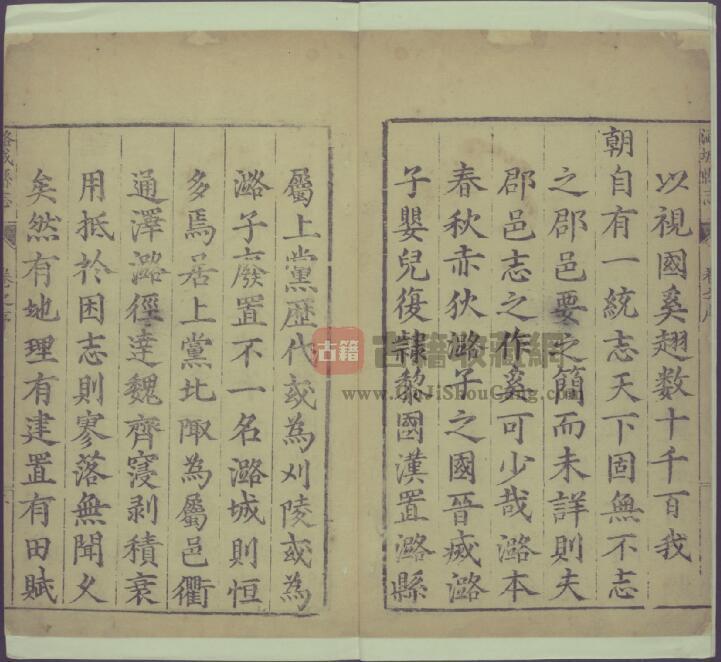 以視國奚趐数十千百我
朝自有一統志天下固無不志
之郡邑要之簡而未詳則夫
郡邑志之作奚可少哉潞本
春秋赤狄潞子之國晉滅潞
子嬰兒復隷黎國漢置潞縣
屬上黨歷代或為刈陵或為
潞子廢置不一名潞城則恒
多焉居上黨北陬為屬邑衢
通澤潞徑達魏齊寖剥積衰
用抵於困志則寥落無聞久
矣然有地理有建置有田賦
潞城縣志
卷之序
古籍
古籍收藏網
GuJiShouCang.com